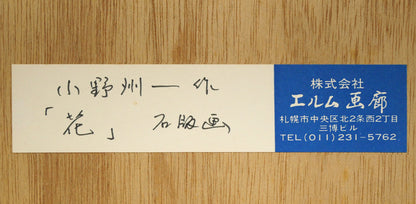 小野州一作
「花」 石版画
株式会社
エルム画廊
札幌市中央区北2条西2丁目
三博ビル
TEL(011)231-5762